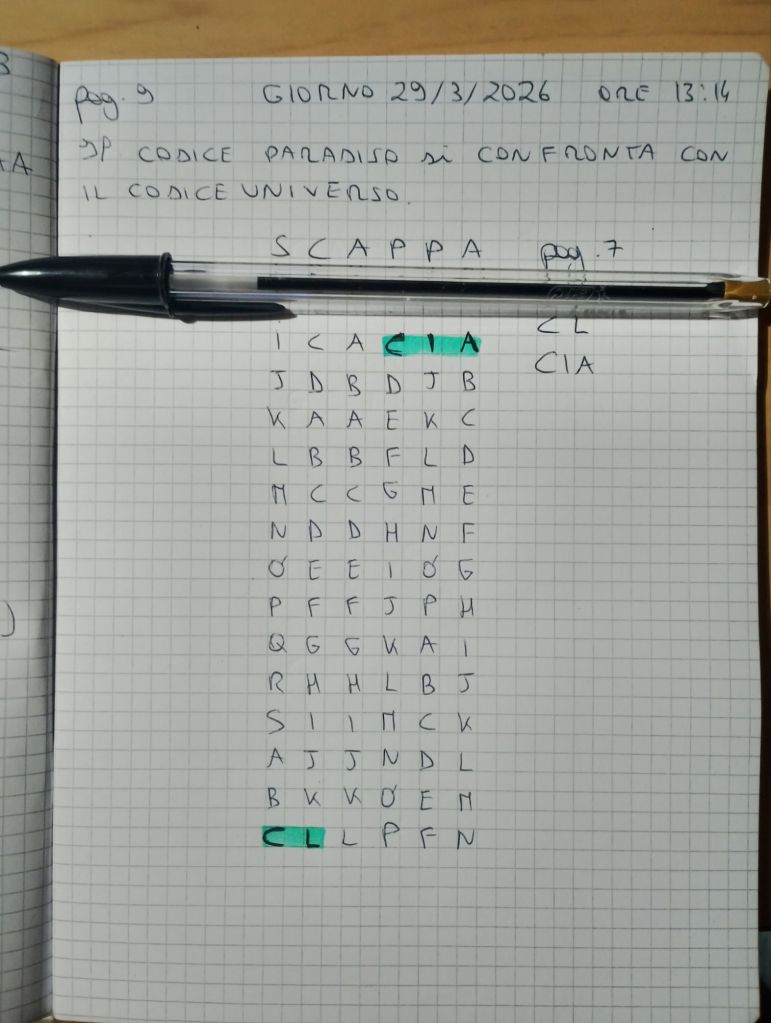 pag. 9 GIORNO 29/3/2026 ORE 13:14
CODICE PARADISO si CONFRONTA CON
IL CODICE UNIVERSO.
S C A P P A pag. 7
CL
I C A C I A
CIA
J D B D J B
K A A E K C
L B B F L D
M C C G M E
N D D H N F
O E E I O G
P F F J P H
Q G G K A I
R H H L B J
S I I M C K
A J J N D L
B K K O E M
C L L P F N